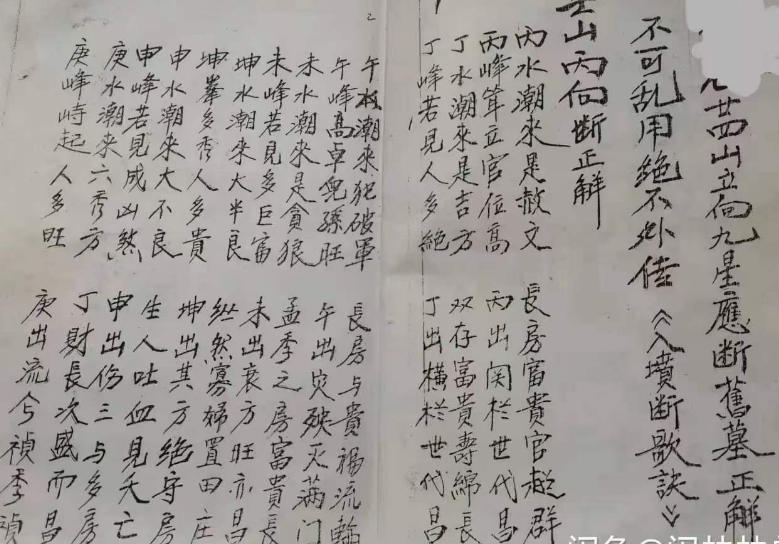 九廿四山立向九星應断舊墓正解
不可乱用绝不外传《入墳断歌訣》
壬山丙向断正解
丙水潮來是赦文 長房富貴官超群
丙峰耸立官位高 丙出関於世代昌
丁水潮來是吉方 双存富貴壽綿長
丁峰若見人多絶 丁出横於世代昌
2
午水潮來犯破軍 長房与貴福流輪
午峰高卓兒孫旺 午出灾殃灭满门
未水潮來是貪狼 孟季之房富貴長
未峰若見多巨富 未出衰方旺亦昌
坤水潮來大半良 纵然寡婦置田庄
坤峯多秀人多貴 坤出其方绝守房
申水潮來大不良 生人吐血見夭亡
申峰若見成凶煞 申出伤三与多房
庚水潮來六秀方 丁財長次盛而昌
庚峰峙起人多旺 庚出流兮禎季禎